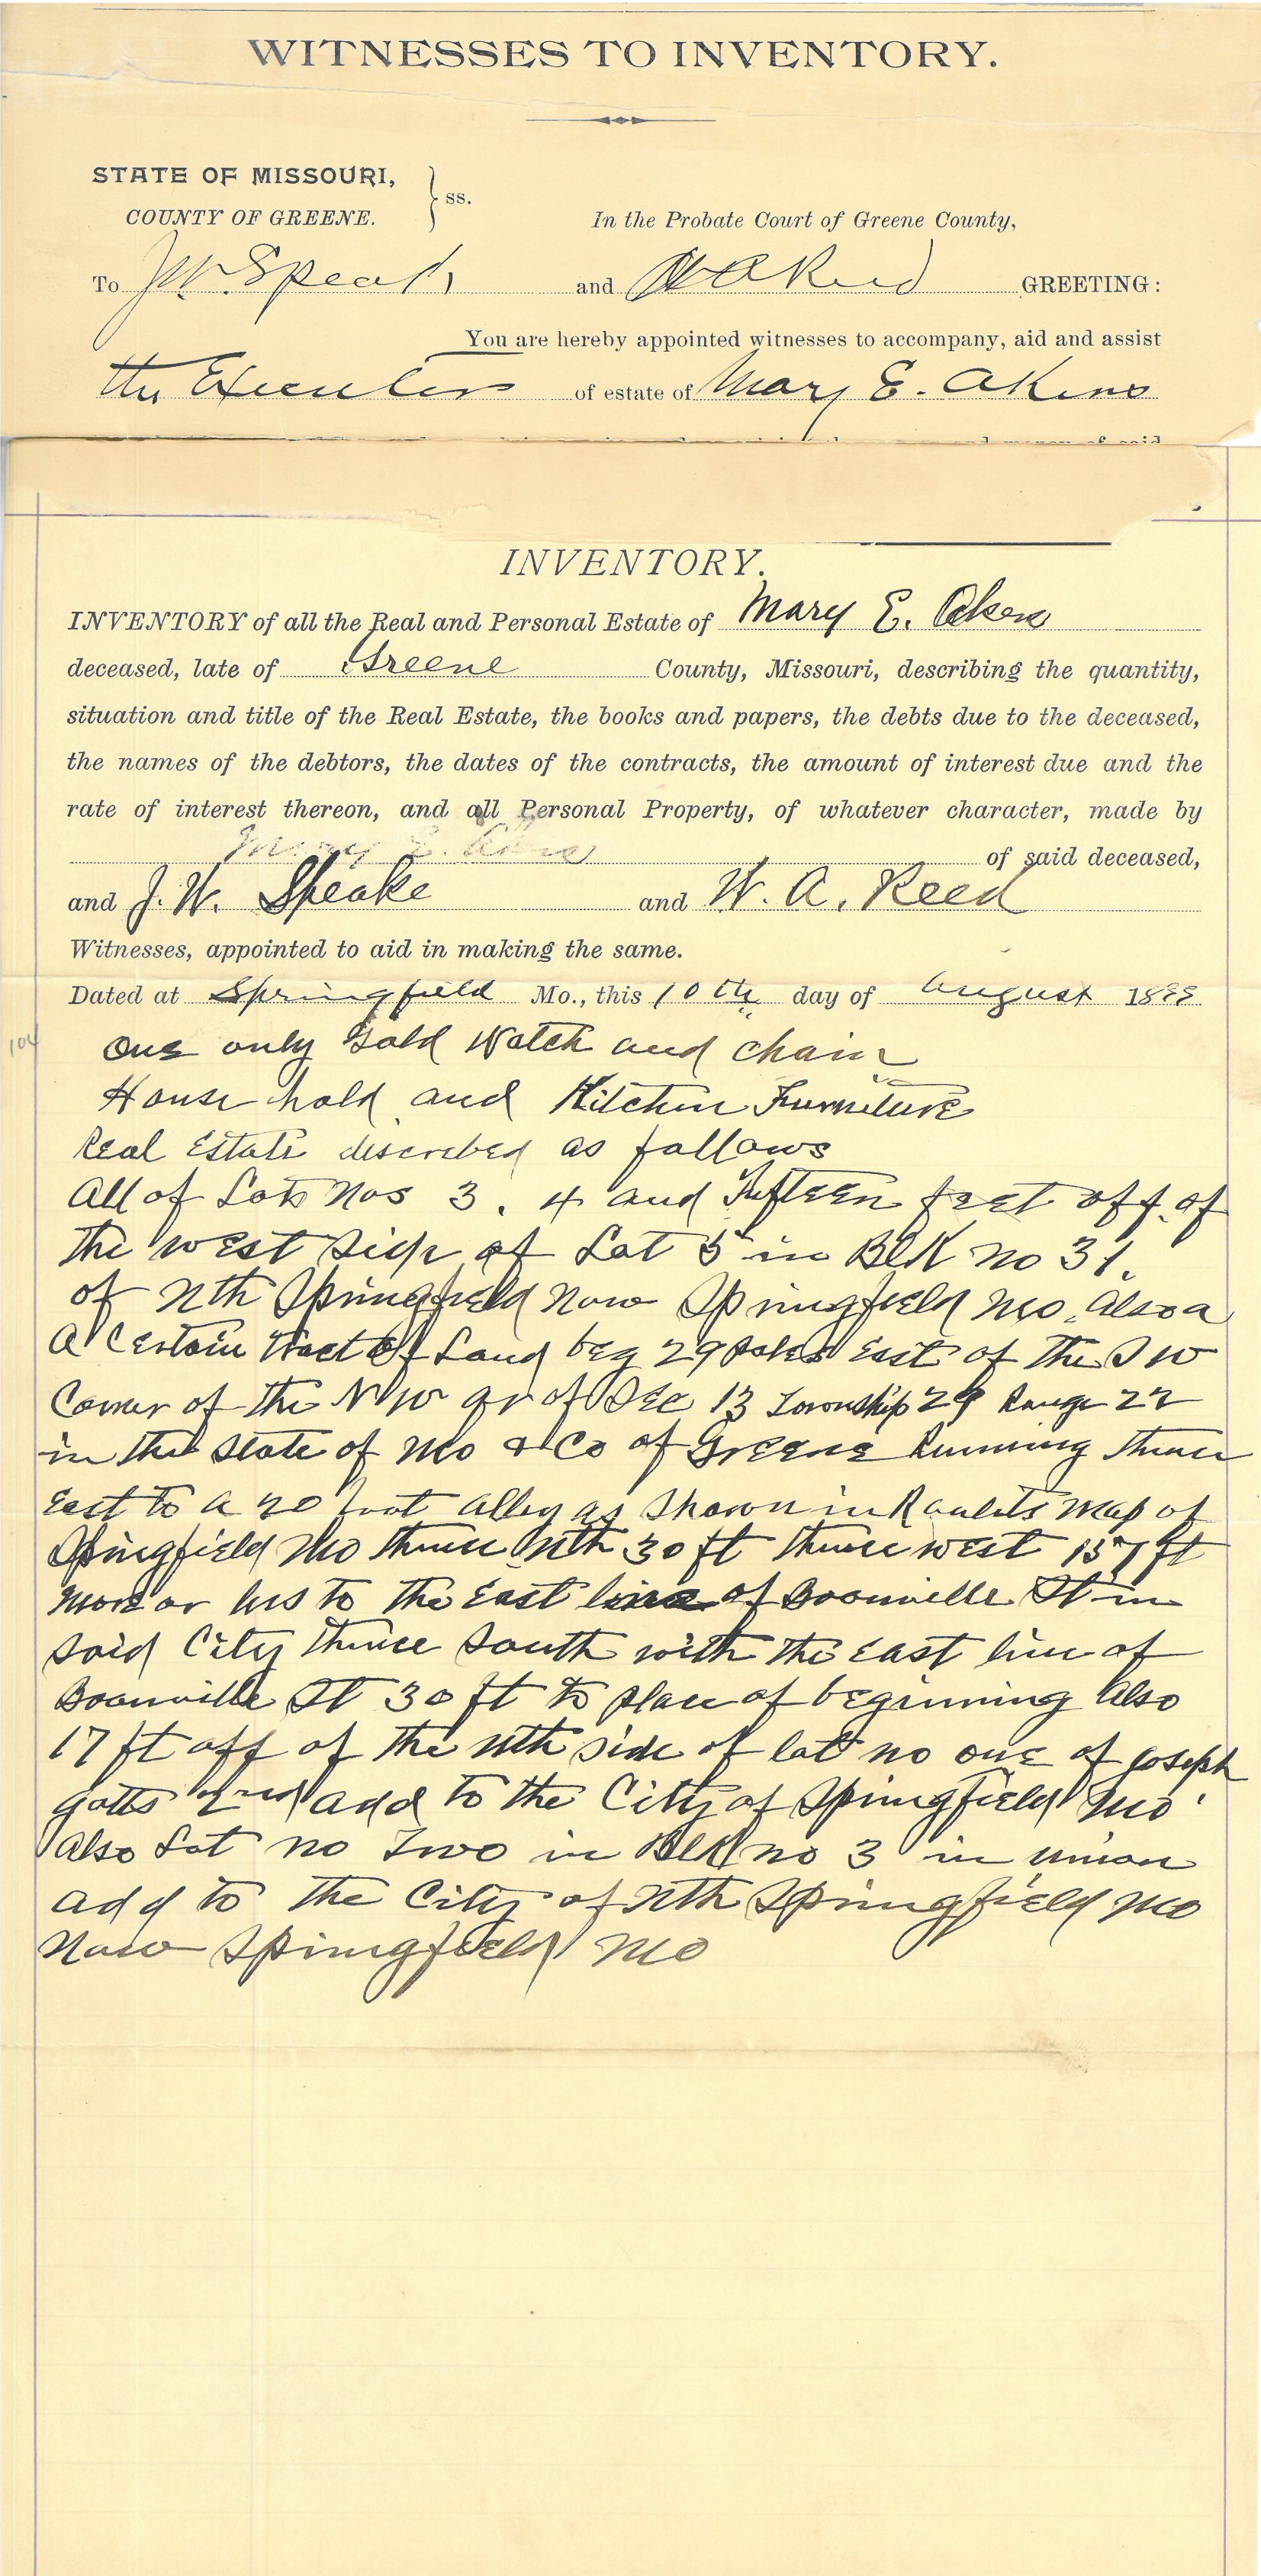 WITNESSES TO INVENTORY.
STATE OF MISSOURI,
COUNTY OF GREENE.
ss.
In the Probate Court of Greene County,
To J.W. Speak and W A Reed GREETING:
You are hereby appointed witnesses to accompany, aid and assist
the Executors of estate of Mary E. Akins
and money of said
INVENTORY.
INVENTORY of all the Real and Personal Estate of Mary E. Akers
deceased, late of Greene County, Missouri, describing the quantity,
situation and title of the Real Estate, the books and papers, the debts due to the deceased,
the names of the debtors, the dates of the contracts, the amount of interest due and the
rate of interest thereon, and all Personal Property, of whatever character, made by
Mary E. of said deceased,
and J. W. Speake and W. A. Reed
Witnesses, appointed to aid in making the same.
Dated at Springfield Mo., this 10th day of August 1899
104
One only Gold Watch and chain
House hold and Kitchen Furniture
Real Estate discribed as follows
All of Lots Nos 3. 4 and Fifteen feet off of
the west side of Lot 5 in Blk no 31.
of Nth Springfield Now Springfield Mo. Also a
A Certain tract of Land beg 29 poles East of the S W
Corner of the N W qr of Sec 13 Township 29 Range 22
in the State of Mo & Co of Greene Running thence
East to a 20 foot alley as Shown in Map of
Springfield Mo thence Nth 30 ft thence west 157 ft
more or less to the East line of Boonville St in
said City thence South with the East line of
Boonville St 30 ft to place of beginning Also
17 ft off of the nth side of lot no one of Joseph
Gotts 2nd add to the City of Springfield Mo
Also Lot no Two in Blk no 3 in Union
add to the City of Nth Springfield Mo
Now Springfield Mo